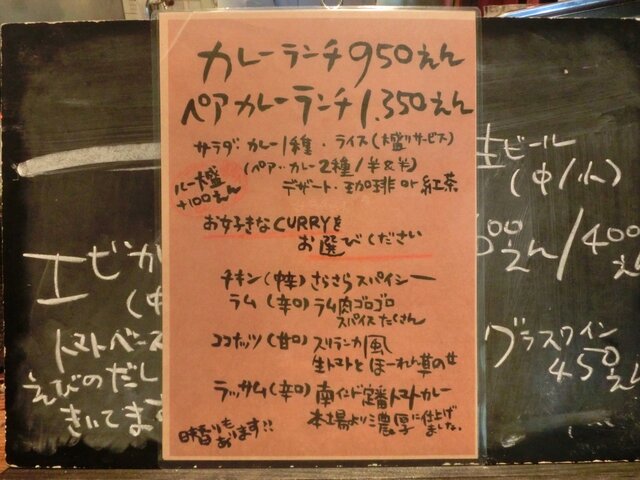 カレーランチ 950えん
ペアカレーランチ 1,350えん
サラダ カレー1種・ライス(大盛りサービス)
(ペア・カレー2種/半&半)
デザート・珈琲 or 紅茶
ルー大盛
+100えん
お好きなCURRYを
お選びください
チキン(中辛)さらさらスパイシー
ラム(辛口)ラム肉ゴロゴロ
スパイスたくさん
ココナッツ(甘口)スリランカ風
生トマトとほーれん草の
ラッサム(辛口)南インド定番トマトカレー
本場より濃厚に仕上げました。
日替りもあります!!
エビカ
(中
トマトベース
えびのだし
きいてます
生ビール
(中/小)
00えん/400え
グラスワイン
450え